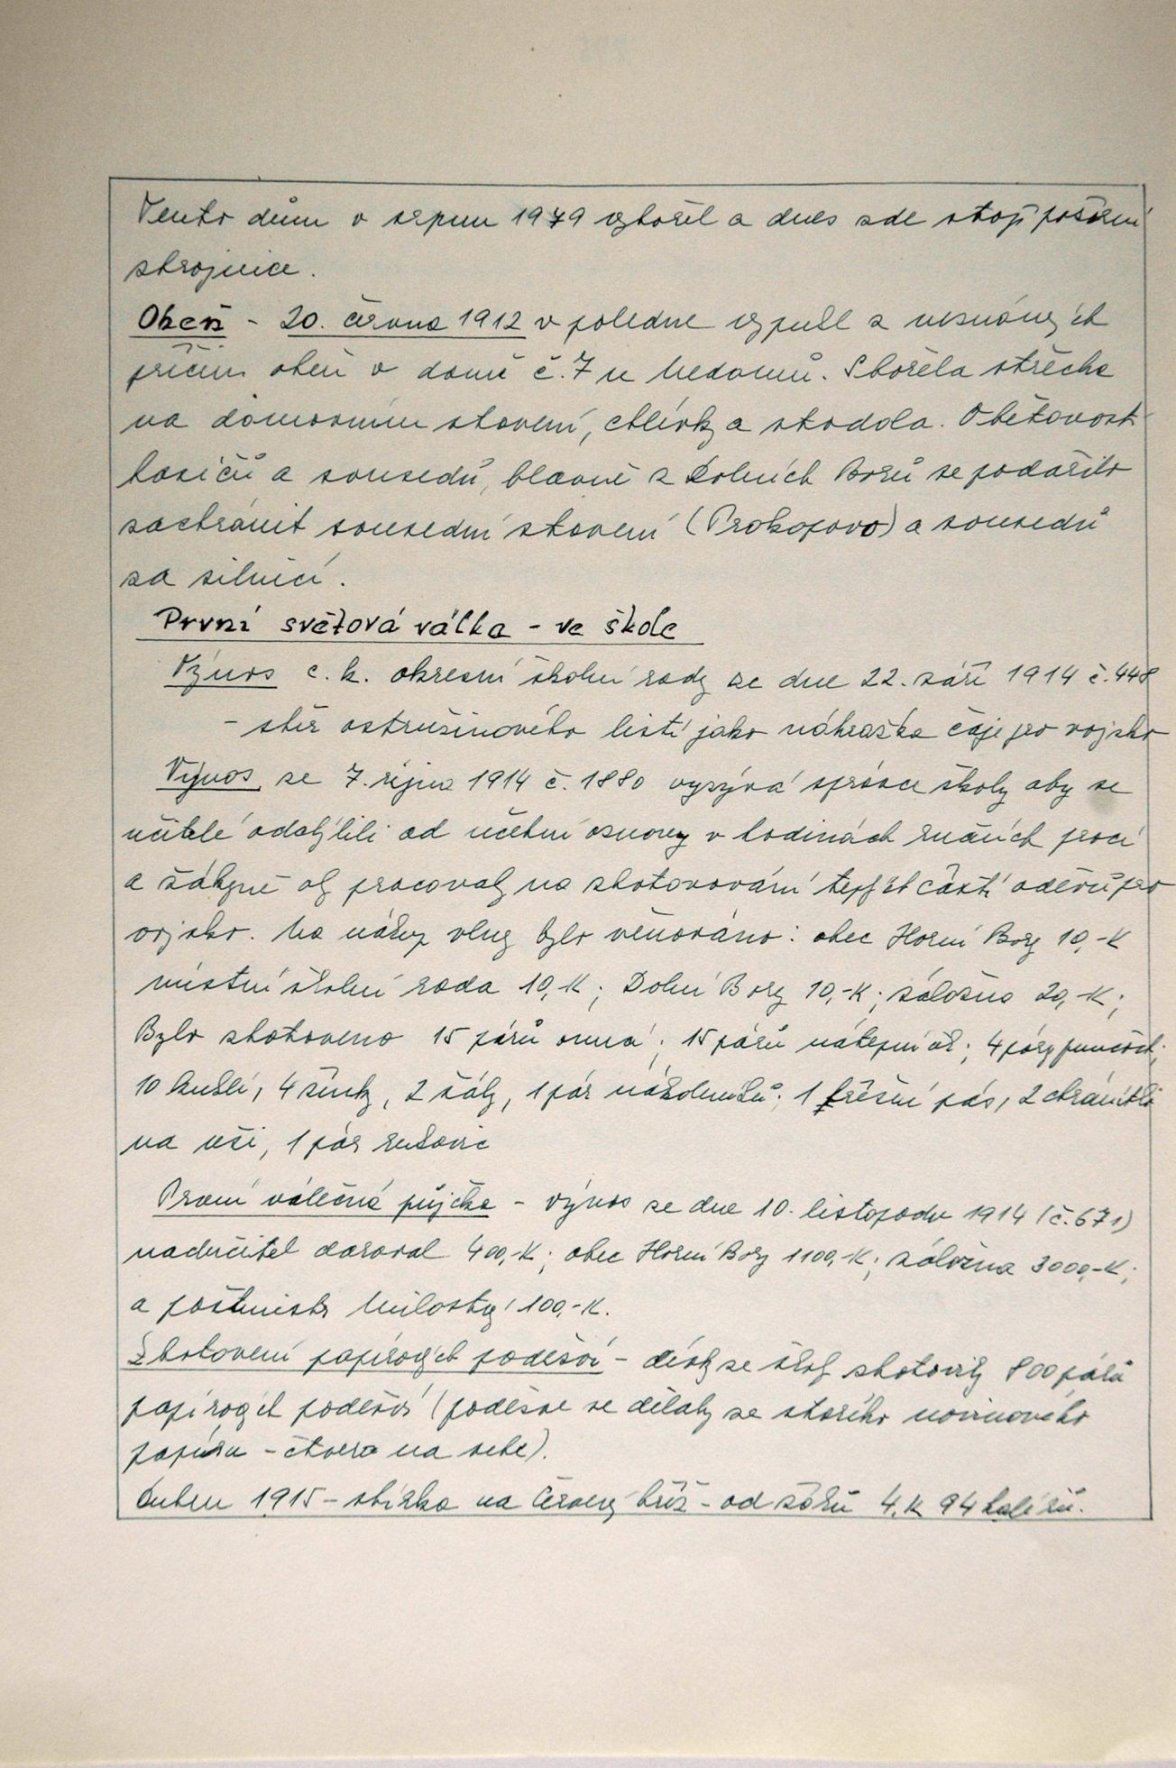 Tento dům v srpnu 1979 vyhořel a dnes zde stojí požární
zbrojnice.
Oheň - 20. června 1912 v poledne vypukl z neznámých
příčin oheň v domě č. 7 u Nedomů. Shořela střecha
na domovním stavení, chlévky a stodola. Obětavostí
hasičů a sousedů, hlavně z Dolních Borů se podařilo
zachránit sousední stavení (Prokopovo) a sousedů
za silnicí.
První světová válka - ve škole
Výnos c. k. okresní školní rady ze dne 22. září 1914 č. 448
- sběr ostružinového listí jako náhražka čaje pro vojsko
Výnos ze 7. října 1914 č. 1880 vyzývá správce školy aby se
učitelé odchýlili od učební osnovy v hodinách ručních prací
a žákyně aby pracovaly na zhotovování teplých částí oděvů pro
vojsko. Na nákup vlny bylo věnováno: obec Horní Bory 10,-K
místní školní rada 10,-K; Dolní Bory 10,-K; záložna 20,-K;
Bylo zhotoveno 15 párů onucí; 15 párů nátepniček; 4 páry punčoch;
10 kuklí, 4 šinky, 2 šály, 1 pár nákoleníků; 1 břišní pás, 2 chránítka
na uši, 1 pár rukavic
První válečná půjčka - výnos ze dne 10. listopadu 1914 (č. 671)
nadučitel daroval 400,-K; obec Horní Bory 1100,-K; záložna 3000,-K;
a poštmistr Milostný 100,-K.
Zhotovení papírových podešví - dívky ze školy zhotovily 800 párů
papírových podešví (podešve se dělaly ze starého novinového
papíru - čtvero na sebe).
Duben 1915 - sbírka na Červený kříž - od žáků 4,K 94 haléřů.